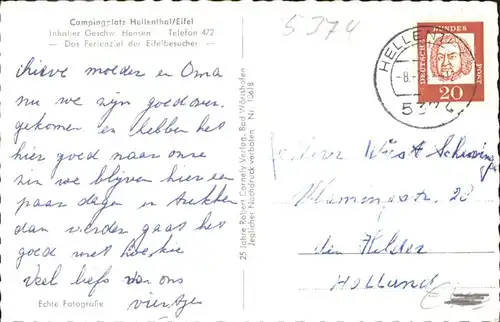 Campingplatz Hellenthal/Eifel
Inhaber Geschw. Hensen Telefon 472
— Das Ferienziel der Eifelbesucher —
5374
lieve moeder en Oma
nu we zijn goed over
gekomen en hebben het
hier goed naar onze
zin we blijven hier een
paar dagen en trekken
dan verder gaat het
goed met
Veel liefs van ons
viertjes
Echte Fotografie
25 Jahre Robert Cornely Verlag, Bad Wörishofen
Jeglicher Nachdruck verboten Nr. 15618
HELLENT
-8.
5374
DEUTSCHE BUNDESPOST
20
28
den Helder
Holland